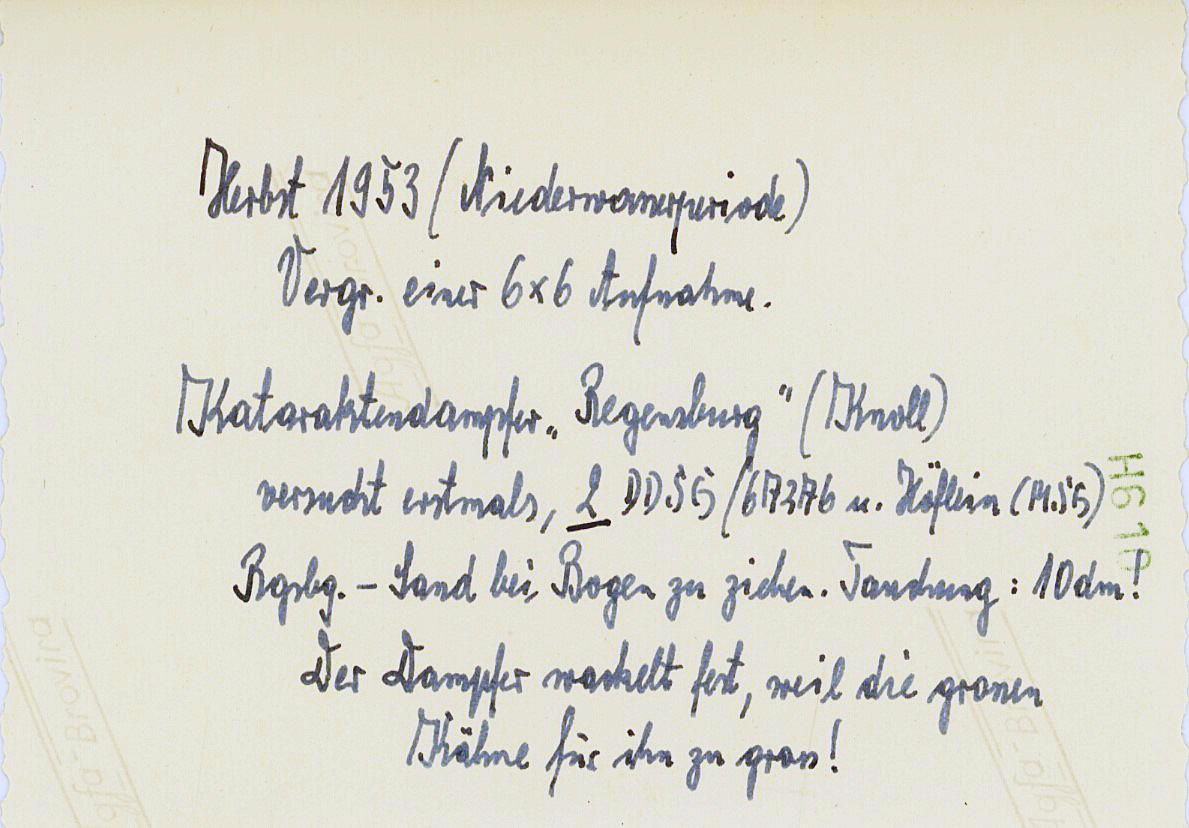 Herbst 1953 (Niederwasserperiode)
Vergr. einer 6x6 Aufnahme.
Kataraktendampfer „Regensburg" (Knoll)
versucht erstmals, 2 DDSG (67276 u. Höflein (M.SG)
Rgsbg. – Sand bei Bogen zu ziehen. Tauchung: 10dm!
Der Dampfer wackelt fest, weil die grossen
Kähne für ihn zu gross!
H610
Agfa-Brovira
Agfa-Brovira
Agfa-Brovira